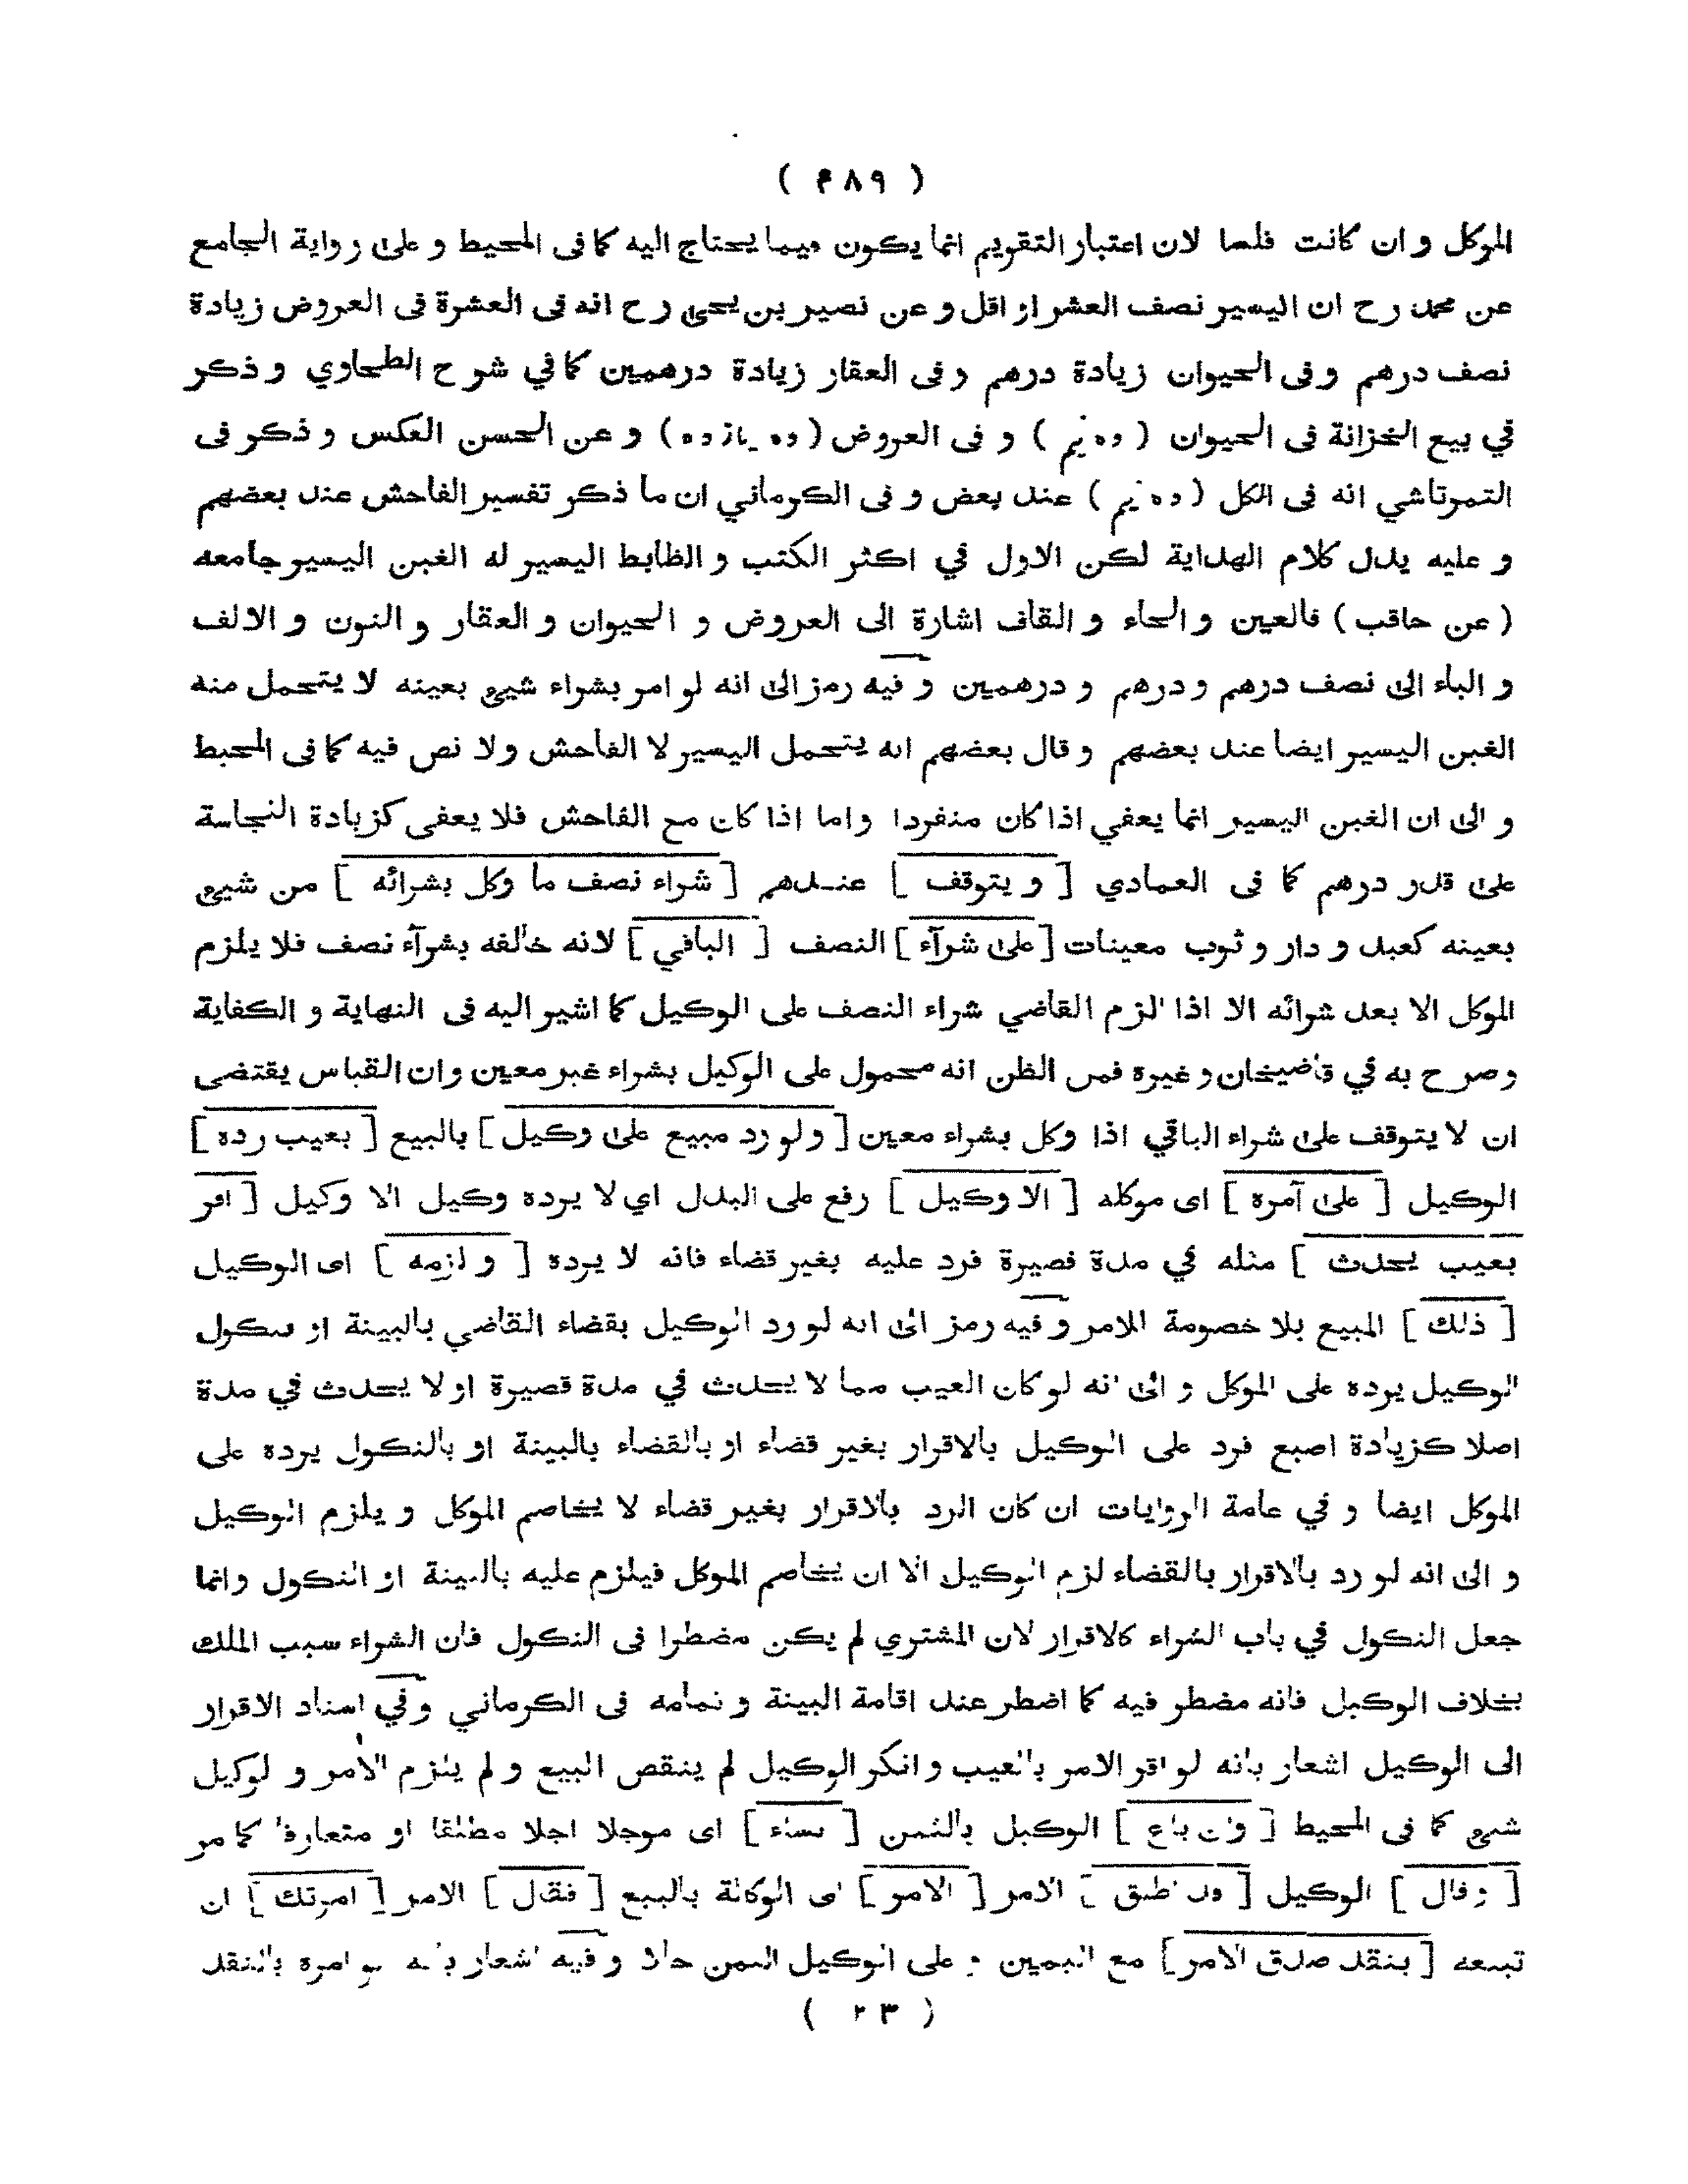 ( ۴۸۹ )
الموكل و ان كانت فلسا لان اعتبار التقويم انما يكون فيما يحتاج اليه كما فى المحيط و على رواية الجامع
عن محمد رح ان اليسير نصف العشر او اقل و عن نصير بن يحيى رح انه فى العشرة فى العروض زيادة
نصف درهم و فى الحيوان زيادة درهم و فى العقار زيادة درهمين كما في شرح الطحاوي و ذكر
في بيع الخزانة فى الحيوان ( ده نيم ) و فى العروض ( ده يازده ) و عن الحسن العكس و ذكر فى
التمرتاشي انه فى الكل ( ده نيم ) عند بعض و فى الكرماني ان ما ذكر تفسير الفاحش عند بعضهم
و عليه يدل كلام الهداية لكن الاول في اكثر الكتب و الظابط اليسير له الغبن اليسير جامعه
( عن حاقب ) فالعين و الحاء و القاف اشارة الى العروض و الحيوان و العقار و النون و الالف
و الباء الى نصف درهم و درهم و درهمين و فيه رمز الى انه لو امر بشراء شيئ بعينه لا يتحمل منه
الغبن اليسير ايضا عند بعضهم و قال بعضهم انه يتحمل اليسير لا الفاحش و لا نص فيه كما فى المحيط
و الى ان الغبن اليسير انما يعفي اذا كان منفردا و اما اذا كان مع الفاحش فلا يعفى كزيادة النجاسة
على قدر درهم كما فى العمادي [ و يتوقف ] عندهم [ شراء نصف ما وكل بشرائه ] من شيئ
بعينه كعبد و دار و ثوب معينات [ على شرآء ] النصف [ الباقي ] لانه خالفه بشرآء نصف فلا يلزم
الموكل الا بعد شرائه الا اذا الزم القاضي شراء النصف على الوكيل كما اشير اليه فى النهاية و الكفاية
و صرح به في قاضيخان و غيره فمن الظن انه محمول على الوكيل بشراء غير معين و ان القياس يقتضى
ان لا يتوقف على شراء الباقي اذا وكل بشراء معين [ و لو رد مبيع على وكيل ] بالبيع [ بعيب رده ]
الوكيل [ على آمره ] اى موكله [ الا وكيل ] رفع على البدل اي لا يرده وكيل الا وكيل [ اقر
بعيب يحدث ] مثله في مدة قصيرة فرد عليه بغير قضاء فانه لا يرده [ و لزمه ] اى الوكيل
[ ذلك ] المبيع بلا خصومة الامر و فيه رمز الى انه لو رد الوكيل بقضاء القاضي بالبينة او نكول
الوكيل يرده على الموكل و الى انه لو كان العيب مما لا يحدث في مدة قصيرة او لا يحدث في مدة
اصلا كزيادة اصبع فرد على الوكيل بالاقرار بغير قضاء او بالقضاء بالبينة او بالنكول يرده على
الموكل ايضا و في عامة الروايات ان كان الرد بالاقرار بغير قضاء لا يخاصم الموكل و يلزم الوكيل
و الى انه لو رد بالاقرار بالقضاء لزم الوكيل الا ان يخاصم الموكل فيلزم عليه بالبينة او النكول و انما
جعل النكول في باب الشراء كالاقرار لان المشتري لم يكن مضطرا فى النكول فان الشراء سبب الملك
بخلاف الوكيل فانه مضطر فيه كما اضطر عند اقامة البينة و تمامه فى الكرماني و في اسناد الاقرار
الى الوكيل اشعار بانه لو اقر الامر بالعيب و انكر الوكيل لم ينقص البيع و لم يلزم الامر و لوكيل
شيئ كما فى المحيط [ و ان باع ] الوكيل بالثمن [ نساء ] اى موجلا اجلا مطلقا او متعارفا كما مر
[ و قال ] الوكيل [ و قد اطلق ] الامر [ الامر ] اى الوكالة بالبيع [ فقال ] الامر [ امرتك ] ان
تبيعه [ بنقد صدق الامر ] مع اليمين و على الوكيل الثمن حالا و فيه اشعار بانه لو امره بالنقد
( ٢٣ )